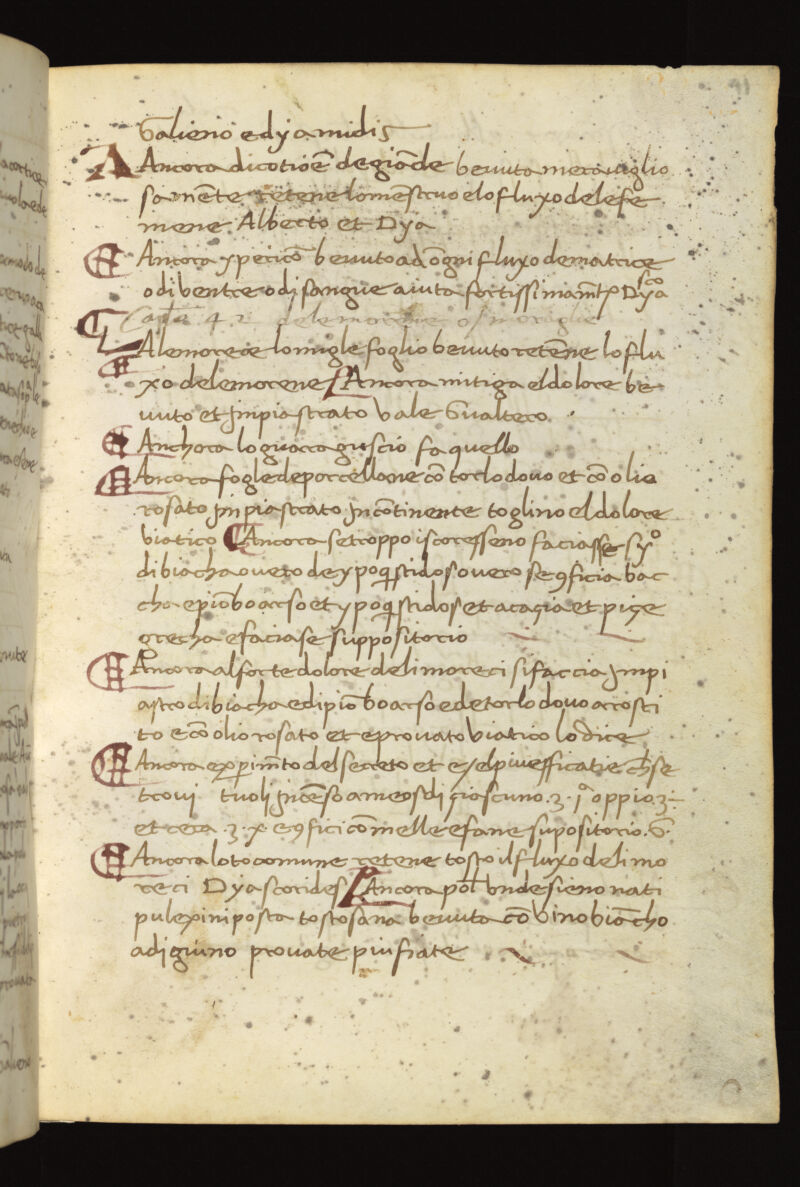 Galieno e dyamidis
Ancora dicotiōē de giāde beuuta merauiglio
samēte retene lo mēstruo e lo fluxo dele fe
mene Alberto et Dya
Ancora ypericō beuuto ad ōgni fluxo de matrice
o di ventre o di sangue aiuta fortissimamt̄e Dyasco
Capla 42 dele morene o moriçie
A le morece lo migle foglio beuuto retēne lo flu
xo de le morene Ancora mitiga el dolore be
uuto et jmpiastrato vale Gualtero
Anchora lo guora guscio fa quello
Ancora fogle de porcellane cō torlo douo et cō olio
rosato jmpiastrato jncōtinente toglino el dolore
viatico Ancora se troppo iscoresseno faciasse syo
di biacha ouero de ypoq̄stidos ouero se 9ficia bac
cha e piōbo arso et ypoq̄stidos et acacia et pige
grecha e faciase suppositorio
Ancora al forte dolore deli moreci si faccia jmpi
astro di biacha e di piōbo arso e de torlo douo arosti
to e cō olio rosato et e prouato viatico lo dice
Ancora exper̄imt̄o del secreto et e yel piu efficatie ch̄ se
troui tuoli jncēso a meosdi cioscuno .ʒ. jª oppio .ʒ.
et cera .ʒ. x. e 9fici cō melle e fane supositorio. G.
Ancora loto comune retene tosto il fluxo deli mo
reci Dyascorides Ancora pol unde sieno nati
pulexini posta tosto sana beuuta cō vino biācho
a digiuno prouate piu fiate